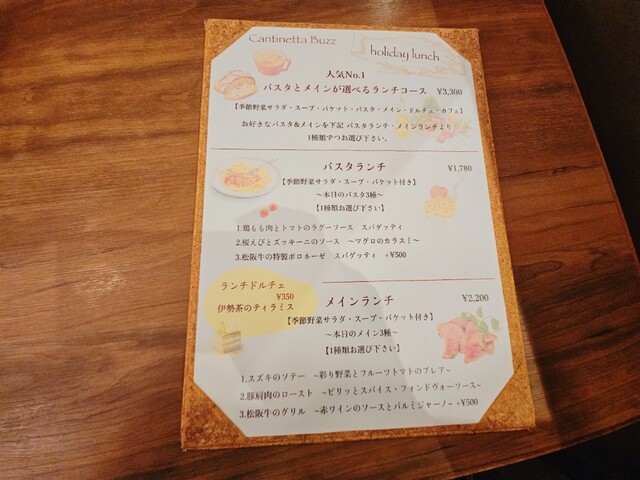 Cantinetta Buzz
holiday lunch
人気No.1
パスタとメインが選べるランチコース ¥3,300
【季節野菜サラダ・スープ・バケット・パスタ・メイン・ドルチェ・カフェ】
お好きなパスタ&メインを下記 パスタランチ・メインランチより
1種類ずつお選び下さい。
パスタランチ ¥1,780
【季節野菜サラダ・スープ・バケット付き】
~本日のパスタ3種~
【1種類お選び下さい】
1.鶏もも肉とトマトのラグーソース スパゲッティ
2.桜えびとズッキーニのソース ~マグロのカラスミ~
3.松阪牛の特製ボロネーゼ スパゲッティ +¥500
ランチドルチェ
¥350
伊勢茶のティラミス
メインランチ ¥2,200
【季節野菜サラダ・スープ・バケット付き】
~本日のメイン3種~
【1種類お選び下さい】
1.スズキのソテー ~彩り野菜とフルーツトマトのブレア~
2.豚肩肉のロースト ~ピリッとスパイス・フォンドヴォーソース~
3.松阪牛のグリル ~赤ワインのソースとパルミジャーノ~ +¥500